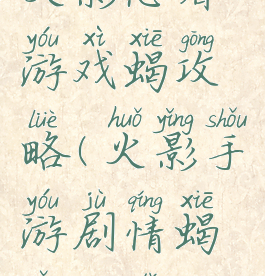 yóu xì xiē gōng
游戏蝎攻
lüè huǒ yǐng shǒu
略(火影手
yóu jù qíng xiē
游剧情蝎